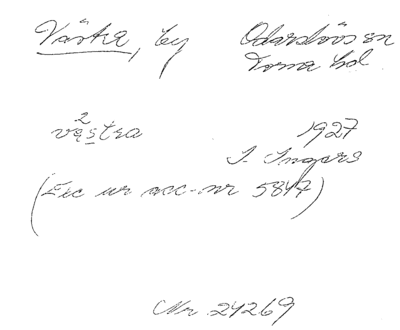 Västra, by Odarslövs sn
Torna hd
2
västra 1927
I. Ingers
(Exc ur acc-nr 5847)
Nr 24269